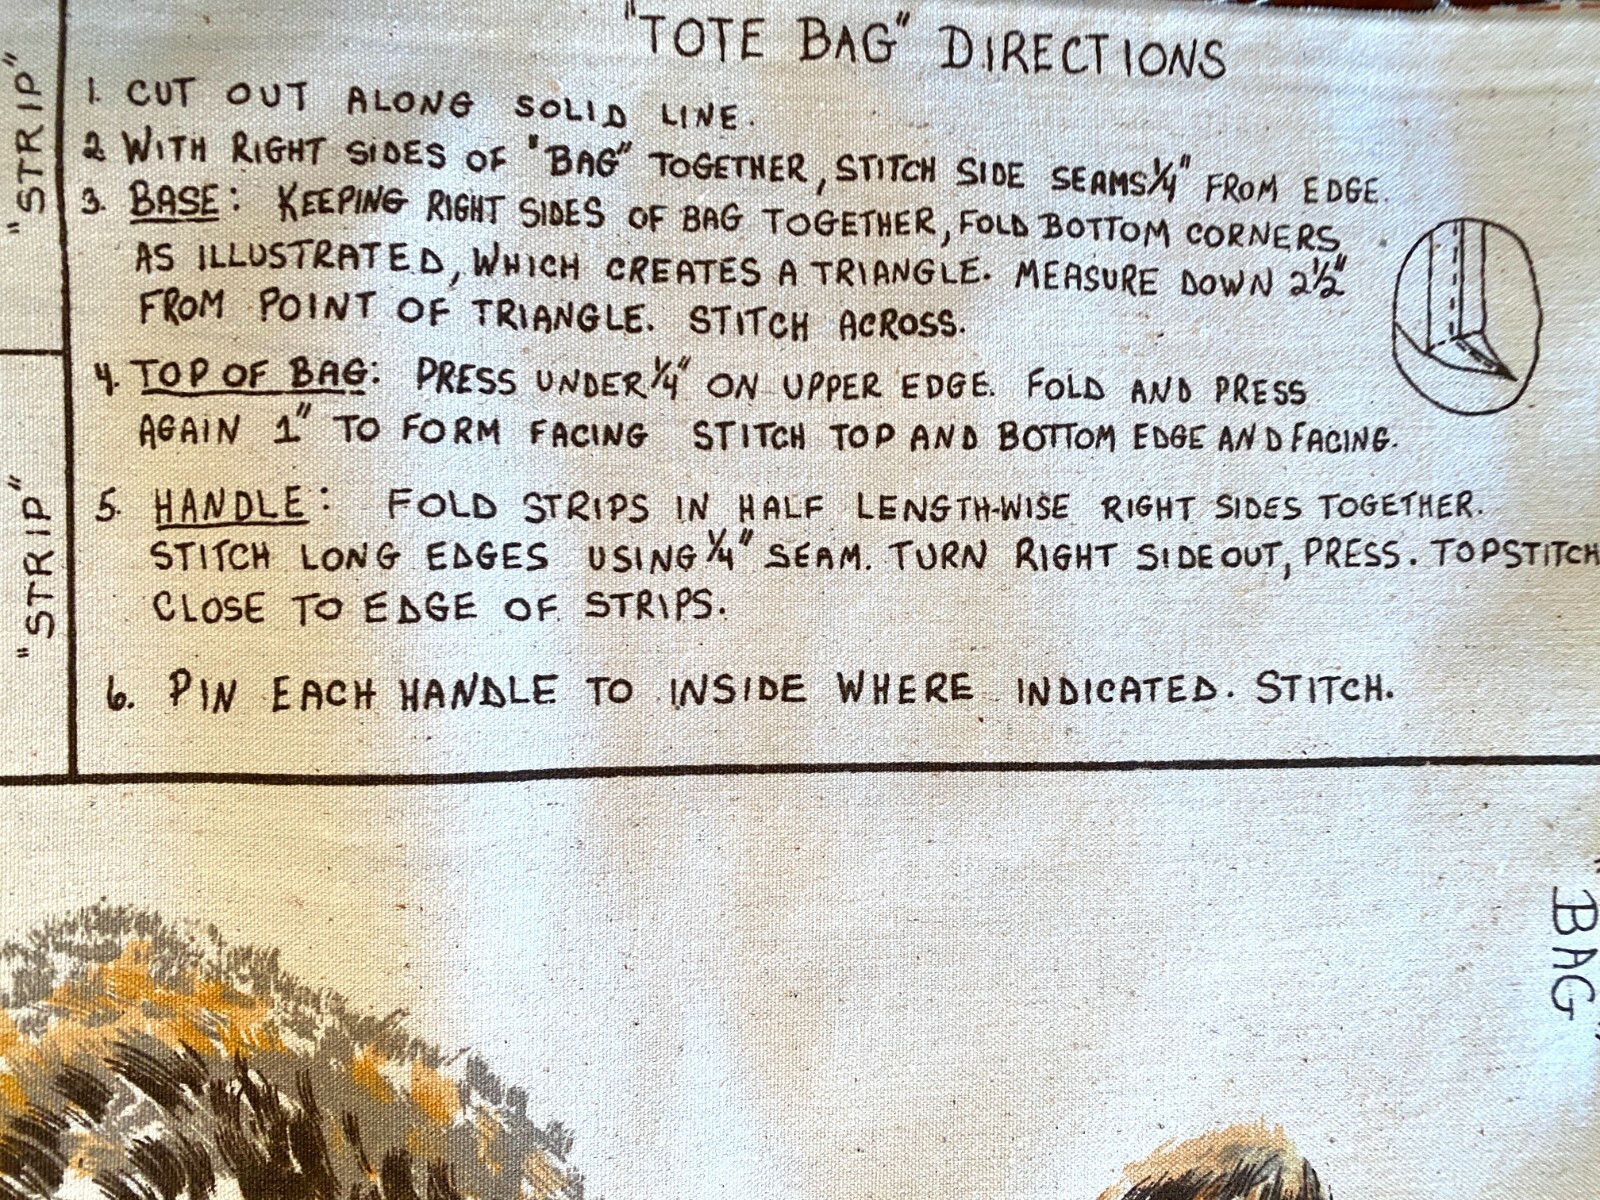 "TOTE BAG" DIRECTIONS
1. CUT OUT ALONG SOLID LINE.
2 WITH RIGHT SIDES OF "BAG" TOGETHER, STITCH SIDE SEAMS 1/4" FROM EDGE.
3. BASE: KEEPING RIGHT SIDES OF BAG TOGETHER, FOLD BOTTOM CORNERS
AS ILLUSTRATED, WHICH CREATES A TRIANGLE. MEASURE DOWN 2 1/2"
FROM POINT OF TRIANGLE. STITCH ACROSS.
4. TOP OF BAG: PRESS UNDER 1/4" ON UPPER EDGE. FOLD AND PRESS
AGAIN 1" TO FORM FACING STITCH TOP AND BOTTOM EDGE AND FACING.
5. HANDLE: FOLD STRIPS IN HALF LENGTH-WISE RIGHT SIDES TOGETHER.
STITCH LONG EDGES USING 1/4" SEAM. TURN RIGHT SIDE OUT, PRESS. TOPSTITCH
CLOSE TO EDGE OF STRIPS.
6. PIN EACH HANDLE TO INSIDE WHERE INDICATED. STITCH.
"STRIP"
"STRIP"
"BAG"